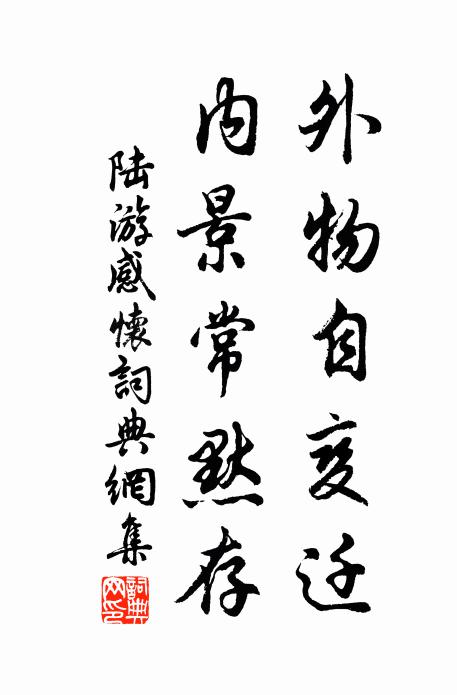 外物自变迁
内景常默存
陆游感怀詞典網集
詞典网印